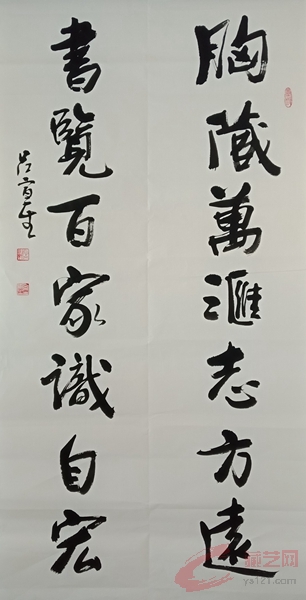 胸藏萬滙志方遠
書覽百家識自宏
藏艺网
ya121.com